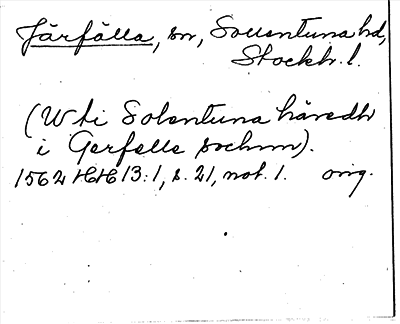 Järfälla, sn, Sollentuna hd,
Stockh. l.
(W ti Solentuna häredh
i Gerfalle sochnn).
1562 HH 13:1, s. 21, not. 1. orig.